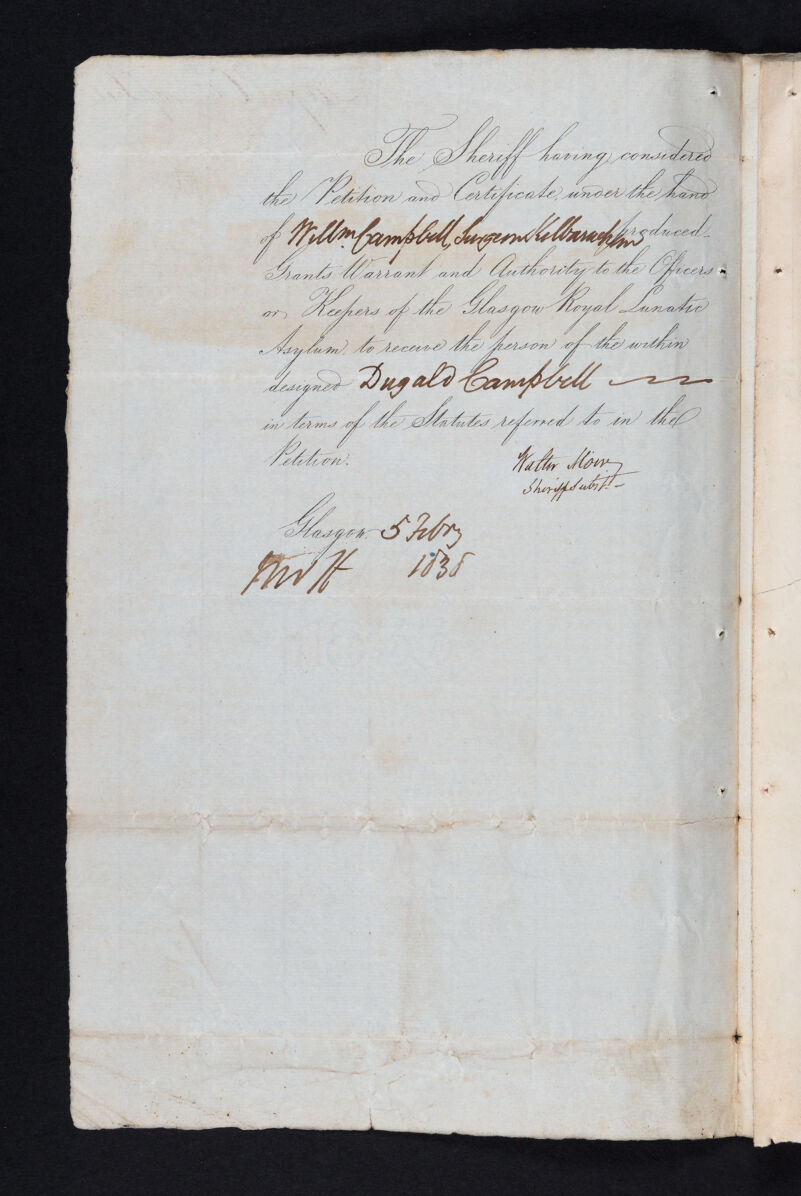 The Sheriff having considered
the Petition and Certificate, under the hand
of Willm. Campbell, Surgeon Kilbarachan produced
Grants Warrant and Authority to the Officers
or Keepers of the Glasgow Royal Lunatic
Asylum, to receive the person of the within
designed Dugald Campbell
in terms of the Statutes referred to in the
Petition.
Walter Moir
Sheriff Subst.
Glasgow 5 Febry
1838